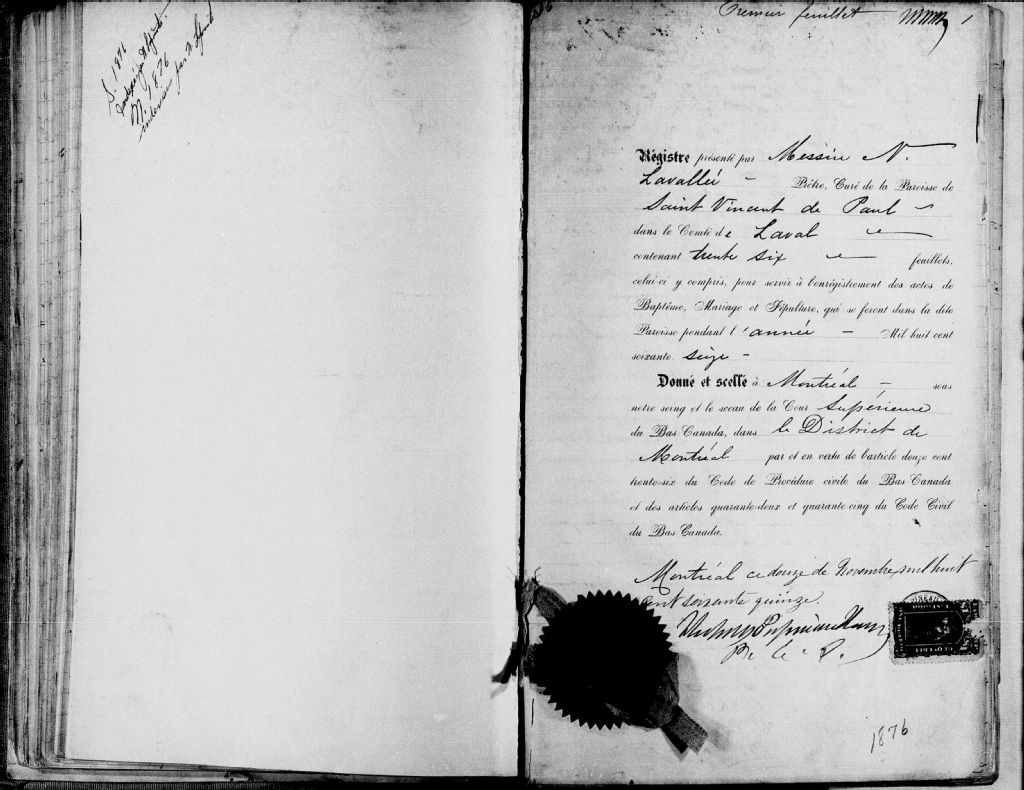 S. 1876
M. 1876
Premier feuillet 1
Régistre présenté par Messire N.
Lavallée - Prêtre, Curé de la Paroisse de
Saint Vincent de Paul -
dans le Comté de Laval
contenant trente six feuillets,
celui-ci y compris, pour servir à l'enrégistrement des actes de
Baptême, Mariage et Sépulture, qui se feront dans la dite
Paroisse pendant l'année - Mil huit cent
soixante seize -
Donné et scellé à Montréal - sous
notre seing et le sceau de la Cour Supérieure
du Bas Canada, dans le District de
Montréal par et en vertu de l'article douze cent
trente-six du Code de Procédure civile du Bas Canada
et des articles quarante-deux et quarante-cinq du Code Civil
du Bas Canada.
Montréal ce douze de Novembre mil huit
cent soixante quinze.
1876